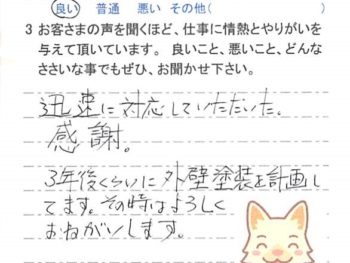 良い 普通 悪い その他( )
3 お客さまの声を聞くほど、仕事に情熱とやりがいを
与えて頂いています。 良いこと、悪いこと、どんな
ささいな事でもぜひ、お聞かせ下さい。
迅速に対応していただいた。
感謝。
3年後くらいに外壁塗装を計画し
てます。その時はよろしく
おねがいします。